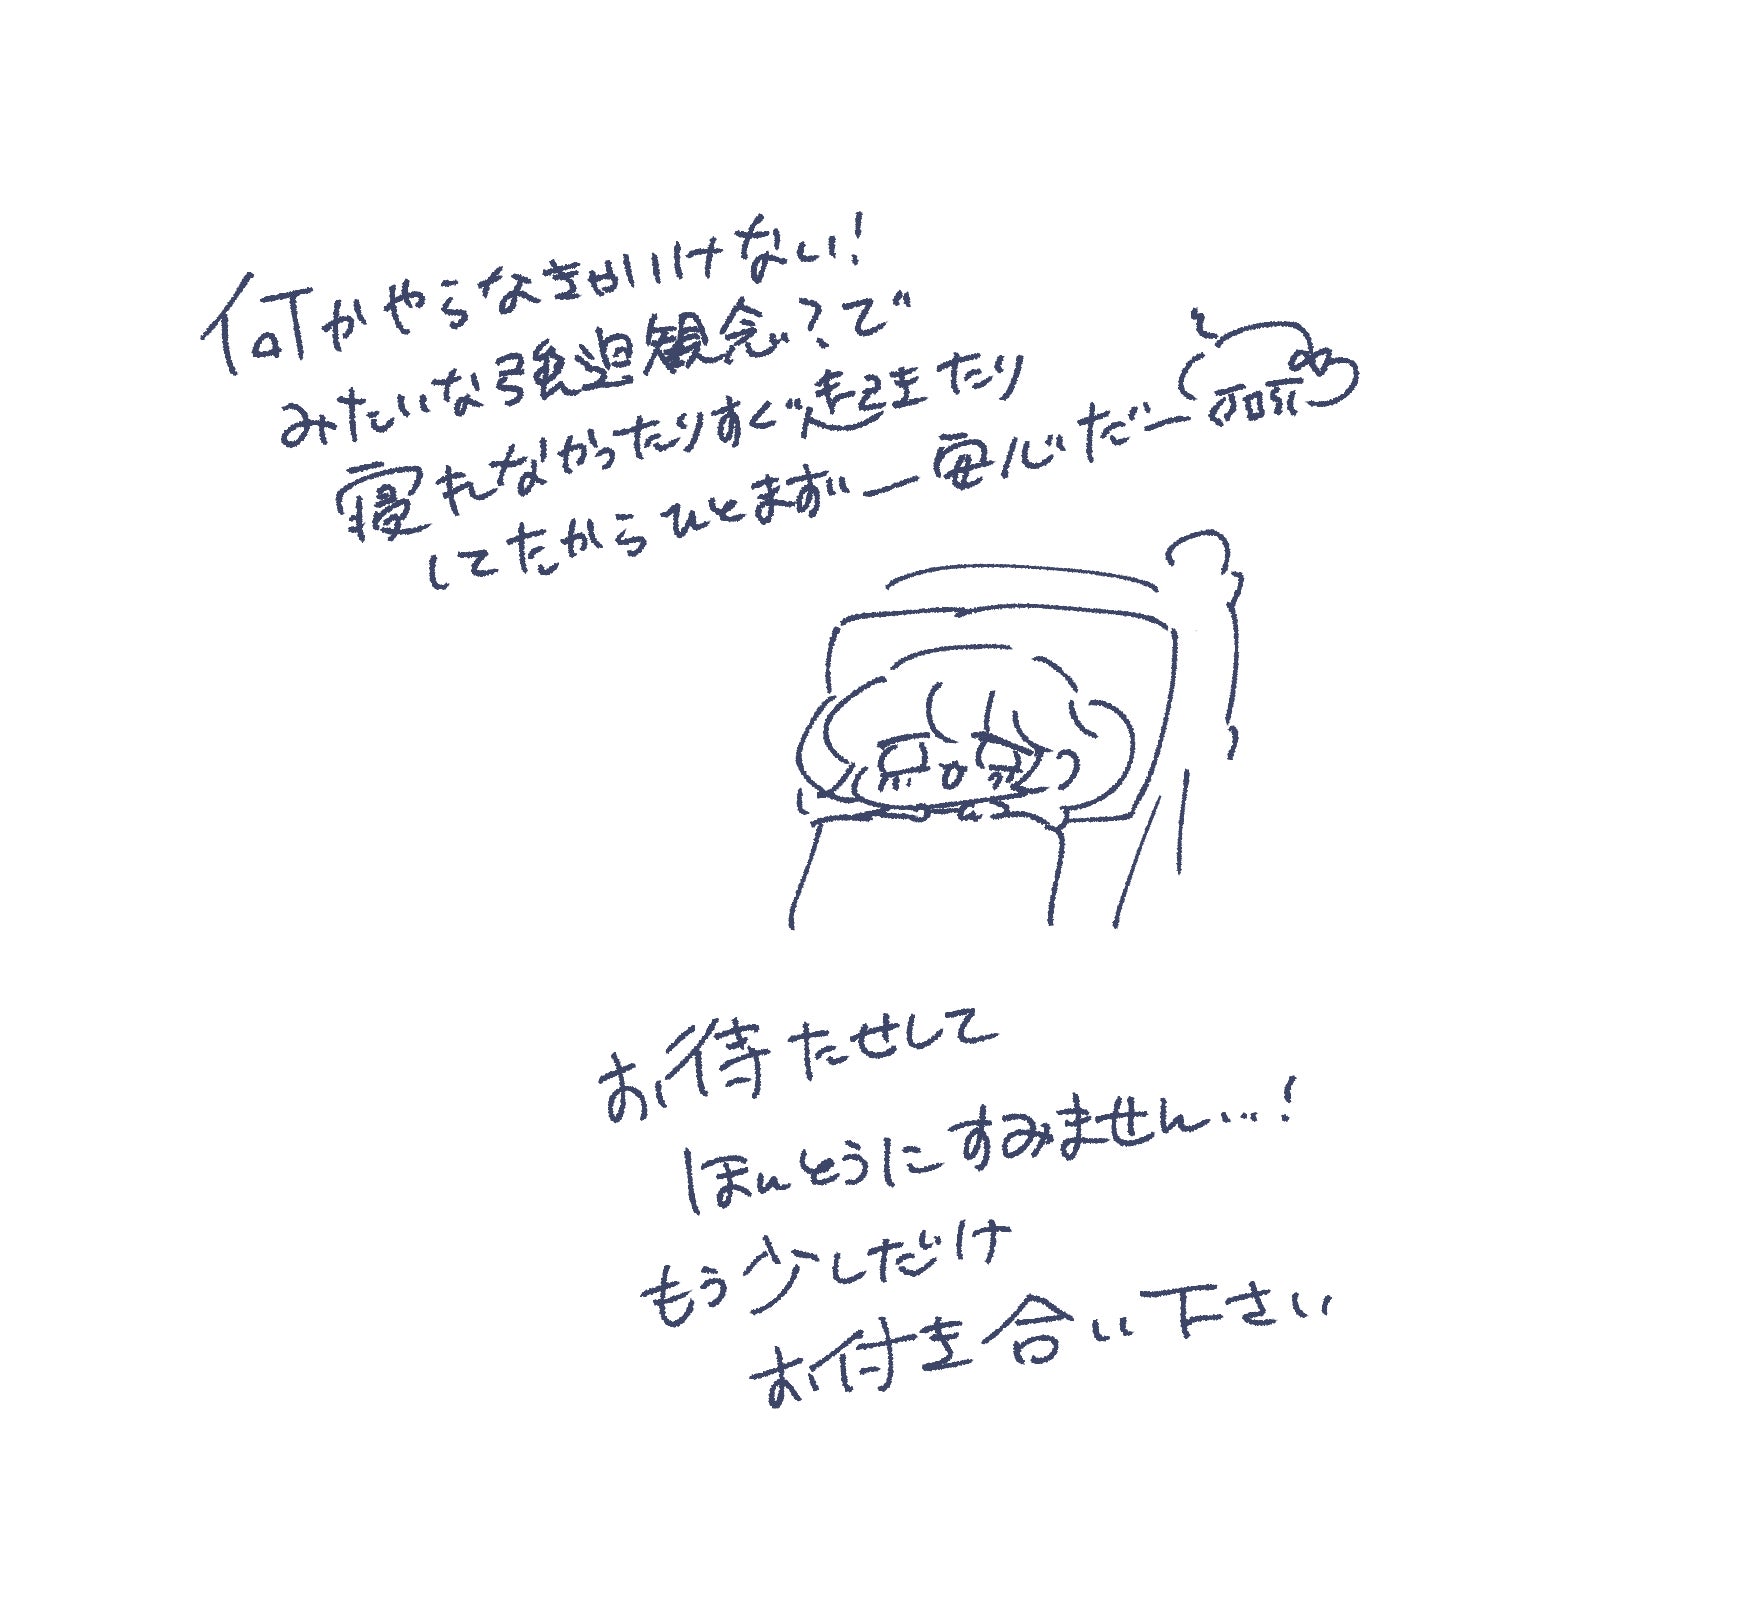 何かやらなきゃいけない！
みたいな強迫観念？で
寝れなかったりすぐ起きたり
してたからひとまず一安心だー
お待たせして
ほんとうにすみません…！
もう少しだけ
お付き合い下さい